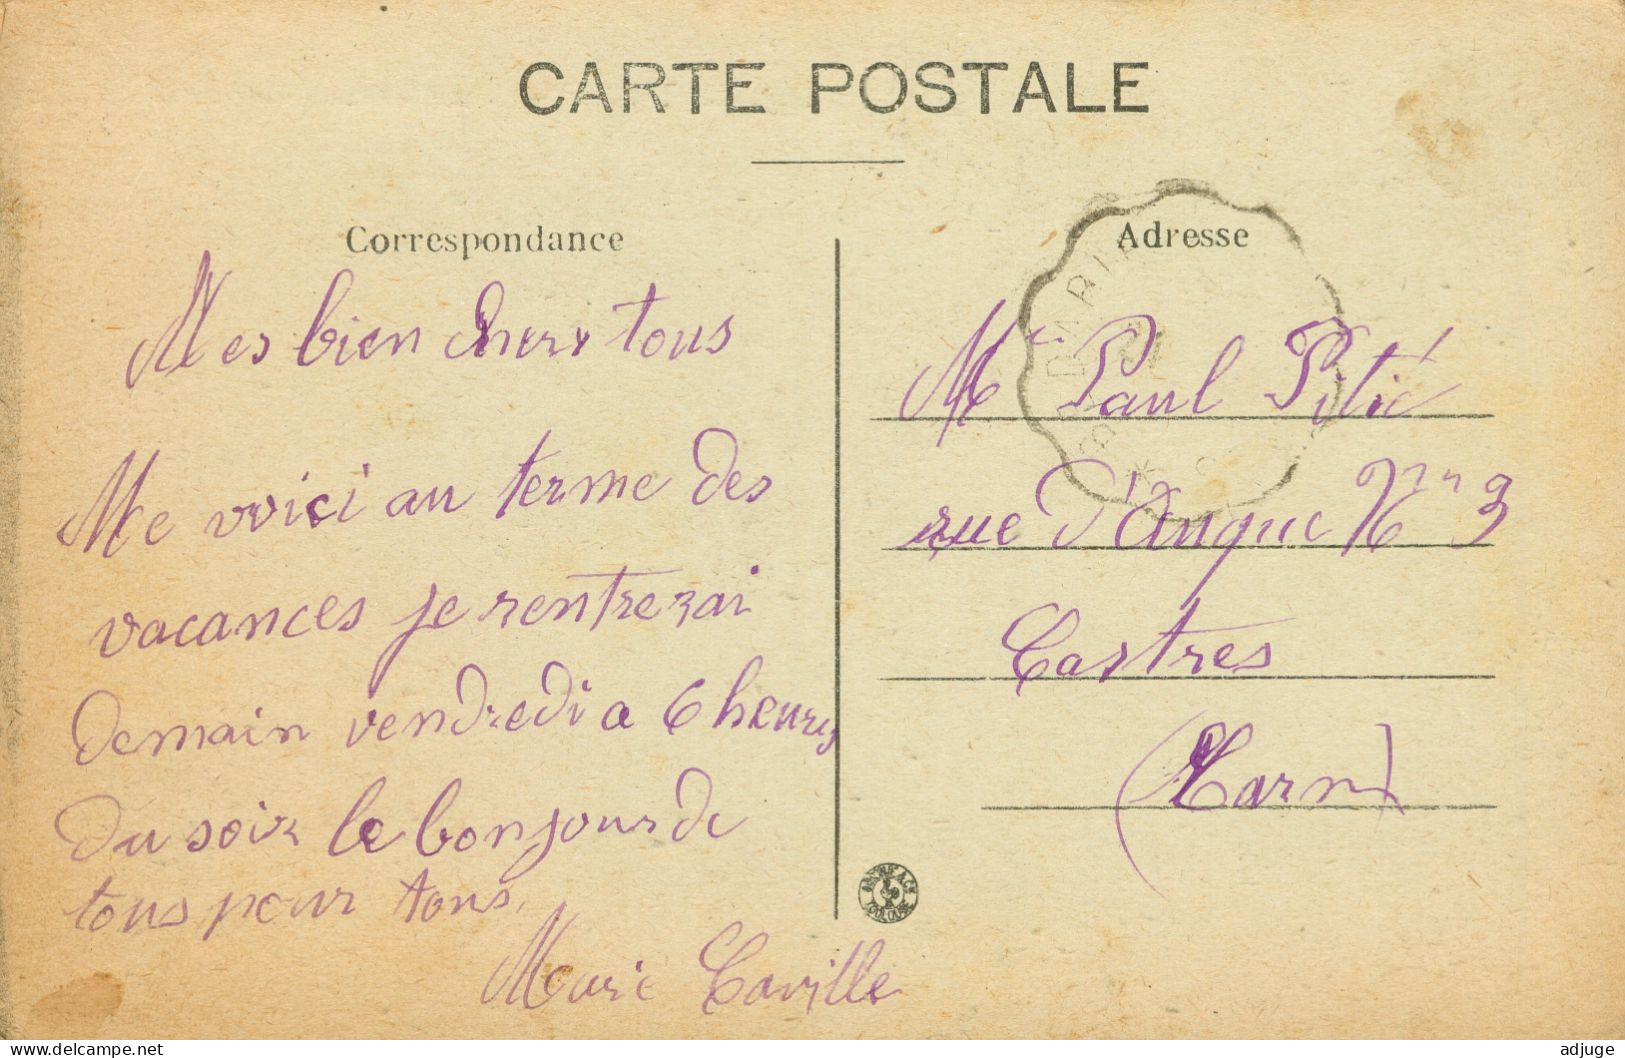 CARTE POSTALE
Correspondance
Adresse
Mes bien chers tous
Me voici au terme des
vacances je rentrerai
demain vendredi a 6 heures
du soir le bonjour de
tous pour tous.
Marie Caville
Mr Paul Pitié
rue d'Anque No 3
Castres
(Tarn)
www.delcampe.net
adjuge